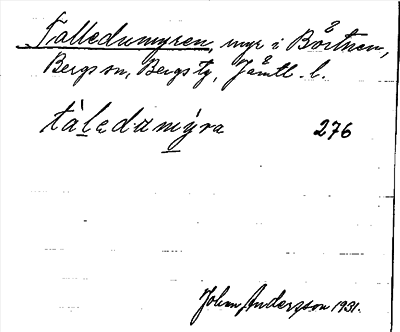 Talledumyren, myr i Börtnen,
Bergs sn, Bergs tg, Jämtl. l.
tàledamýra 276
Johan Andersson 1931.